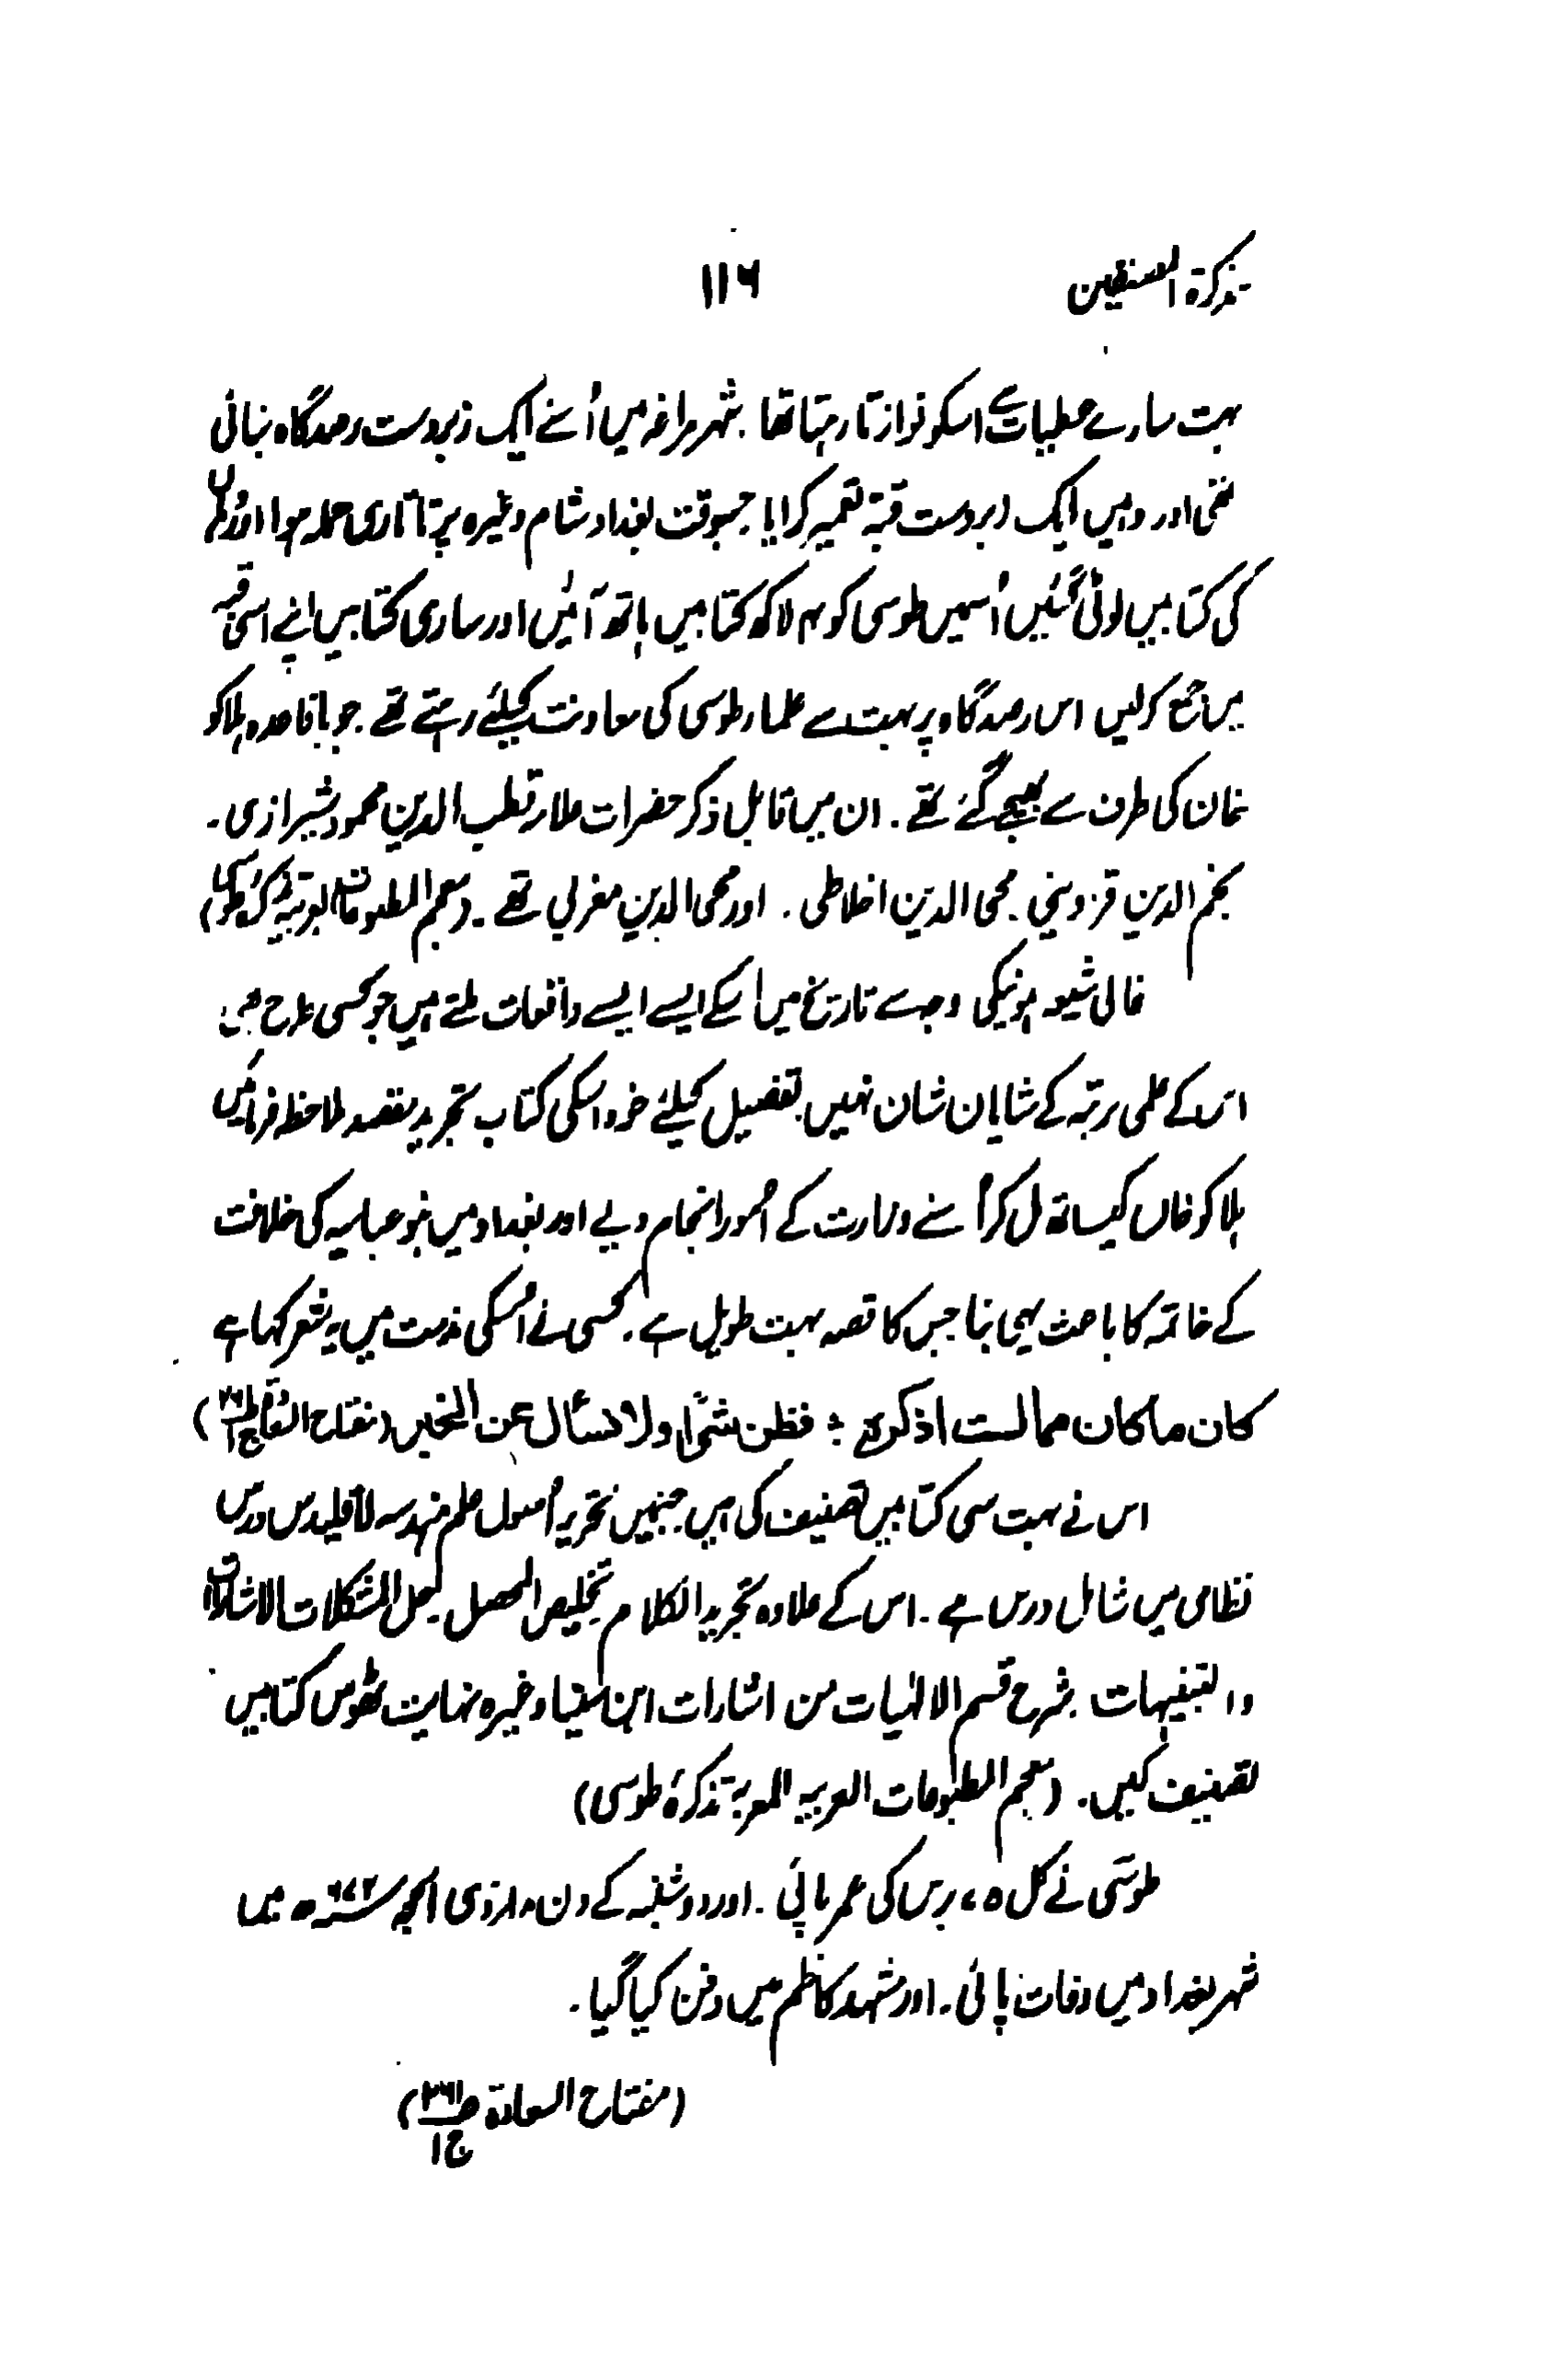 تذکرۃ المصنفین ۱۱۶
بہت سارے عطیات سے اسکو نوازتا رہتا تھا۔ شہر مراغہ میں اُسنے ایک زبردست رصدگاہ بنائی
تھی اور وہیں ایک زبردست قبہ تعمیر کرایا جسوقت بغداد شام وغیرہ پر تاتاری حملہ ہوا اور
کی کتابیں لوٹی گئیں اُسمیں طوسی کو ۴ لاکھ کتابیں ہاتھ آئیں اور ساری کتابیں اپنے اسی قبہ
میں جمع کرلیں اس رصدگاہ پر بہت سے علماء طوسی کی معاونت کیلئے رہتے تھے۔ جو باقاعدہ ہلاکو
خان کی طرف سے بھیجے گئے تھے۔ ان میں قابل ذکر حضرات علامہ قطب الدین محمود شیرازی۔
نجم الدین قزوینی۔ محی الدین اخلاطی۔ اور محی الدین مغربی تھے۔ (معجم المطبوعات العربیہ تذکرہ طوسی)
غالی شیعہ ہونیکی وجہ سے تاریخ میں اسکے ایسے ایسے واقعات ملتے ہیں جو کسی طرح بھی
اس کے علمی رتبہ کے شایان شان نہیں۔ تفصیل کیلئے خود اسکی کتاب تجرید مقصد ملاحظہ فرمائیں
ہلاکو خاں کیساتھ مل کر اُسنے وزارت کے اُمور انجام دیے اور بغداد میں بنو عباسیہ کی خلافت
کے خاتمہ کا باعث بھی بنا جس کا قصہ بہت طویل ہے۔ کسی نے اُسکی مذمت میں یہ شعر کہا ہے
کان ما کان مما لست اذکرہ ؛ فظن شرًّا ولا تسأل عن الخیر (مفتاح السعادۃ ج۱)
اس نے بہت سی کتابیں تصنیف کی ہیں جنہیں تحریر اُصول علم ہندسہ لاقلیدس درس
نظامی میں شامل درس ہے۔ اس کے علاوہ تجرید الکلام تلخیص المحصل لحل المشکلات الاشارات
والتنبیہات۔ شرح قسم الالہیات من اشارات ابن سینا وغیرہ نہایت ٹھوس کتابیں
تصنیف کیں۔ (معجم المطبوعات العربیہ المعربۃ تذکرۂ طوسی)
طوسی نے کل ۷۵ برس کی عمر پائی۔ اور دوشنبہ کے دن ۱۸ ذی الحجہ ۶۷۲ھ میں
شہر بغداد میں وفات پائی۔ اور مشہد کاظم میں دفن کیا گیا۔
(مفتاح السعادۃ ص۲۶۱ ج۱)